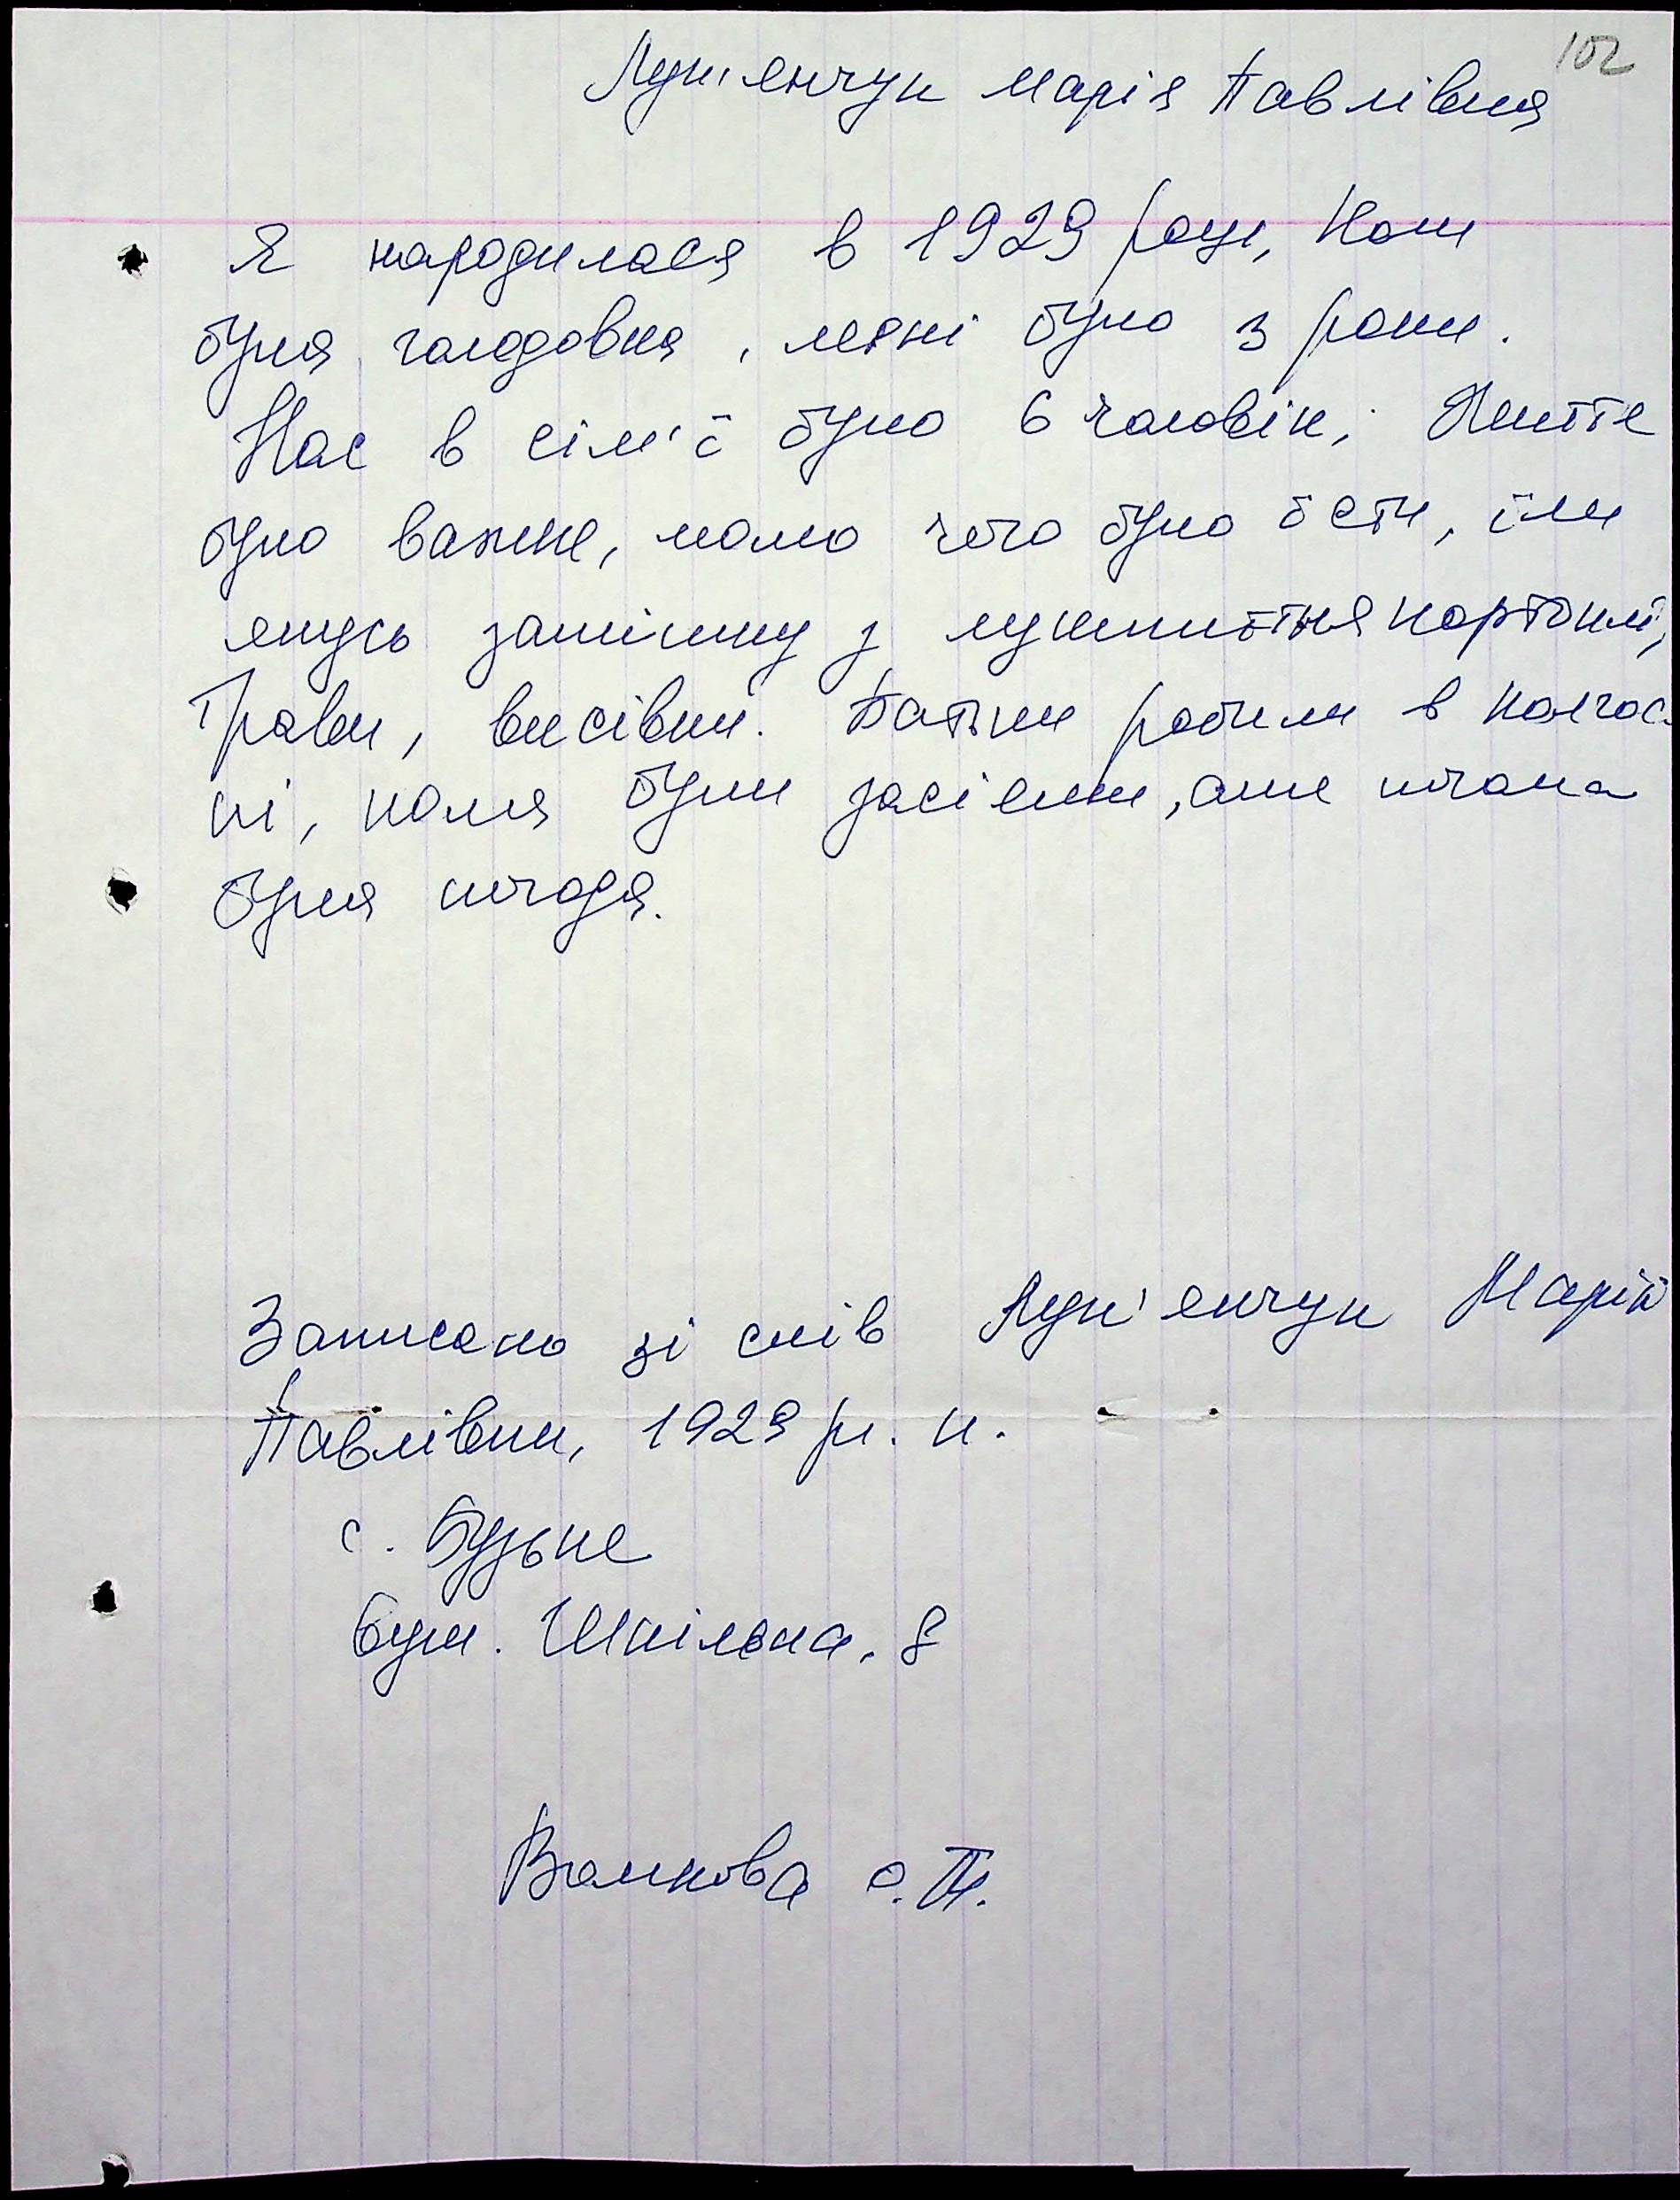 102
Лук'янчук Марія Павлівна
Я народилася в 1929 році, коли
була голодовка, мені було 3 роки.
Нас в сім'ї було 6 чоловік, Життя
було важке, мало чого було їсти, їли
якусь затішку з лушпиття картоплі,
трави, висівки. Батьки робили в колгос-
пі, поля були засіяні, але така
була погода.
Записано зі слів Лук'янчук Марії
Павлівни, 1929 р. н.
с. Бузьке
вул. Шкільна, 8
Волкова О.П.